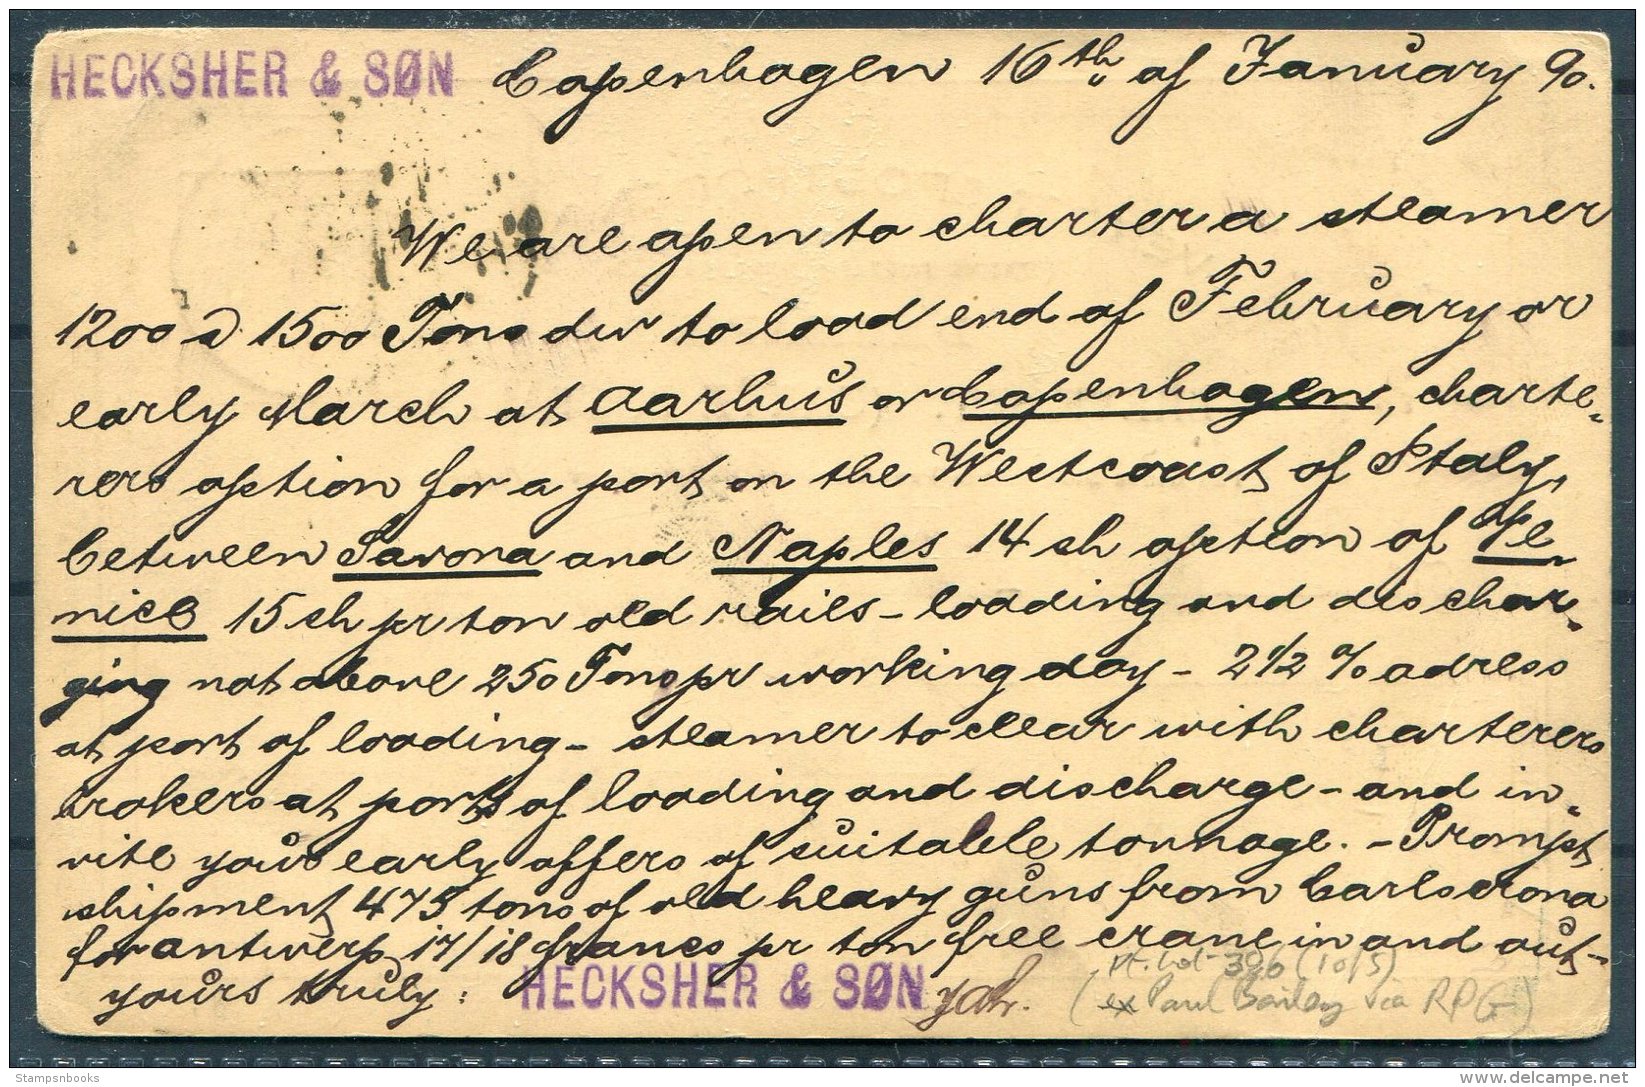 HECKSHER & SØN Copenhagen 16th of January 90.
We are open to charter a steamer
1200 a 1500 Tons dw to load end of February or
early March at Aarhus or Copenhagen, charte-
rers option for a port on the Westcoast of Italy,
between Savona and Naples 14 sh option of Ve-
nice 15 sh pr ton old rails - loading and dischar-
ging not above 250 Tons pr working day - 2 1/2 % adress
at port of loading - steamer to clear with charterers
brokers at ports of loading and discharge - and in-
vite your early offers of suitable tonnage. - Prompt
shipment 475 tons of old heavy guns from Carlscrona
for Antwerp 17/18 francs pr ton free crane in and out -
yours truly: HECKSHER & SØN
Pt. Lot 396 (10/5)
(ex Paul Bailey via RPG)
Stampsnbooks
www.delcampe.net